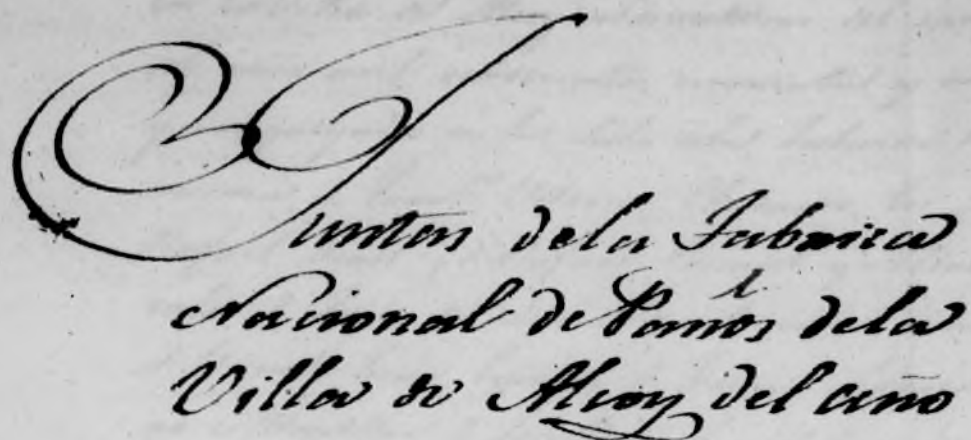 Juntas dela Fabrica
Nacional de Paños dela
Villa de Alcoy del año